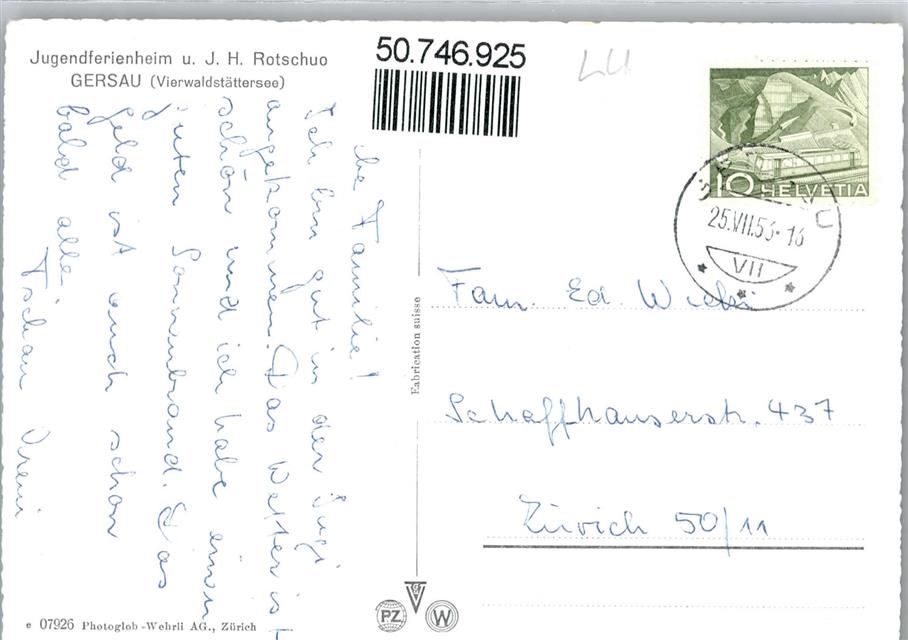 Jugendferienheim u. J. H. Rotschuo
GERSAU (Vierwaldstättersee)
50.746.925
LU
10 HELVETIA
25.VII.53-16
VII
be Familie!
Ich bin gut in der Jugi
angekommen. Das Wetter ist
schön und ich habe einen
guten Sonnenbrand. Das
Geld ist auch schon
bald alle.
Tschau Vreni
Fabrication suisse
Fam. Ed.
Schaffhauserstr. 437
Zürich 50/11
e 07926 Photoglob-Wehrli AG., Zürich
PZ
W